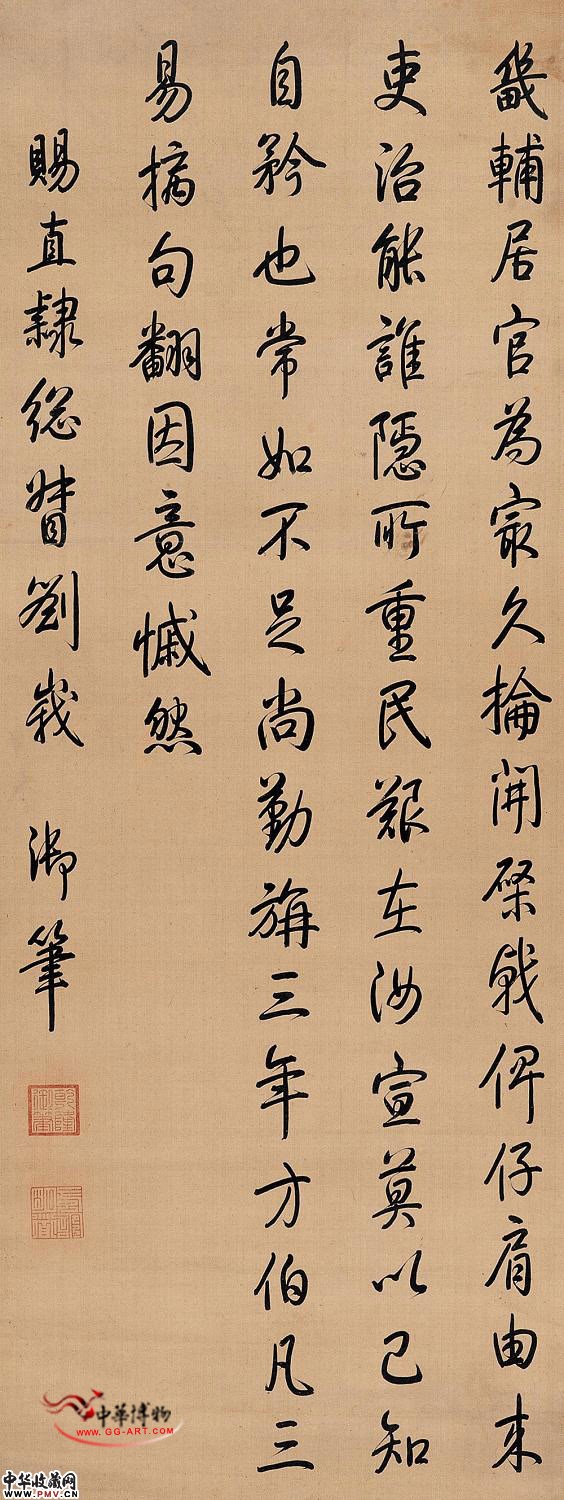 畿輔居官為最久掄開棨戟俾仔肩由来
吏治能誰隱所重民艱在汝宣莫以已知
自矜也常如不足尚勤旃三年方伯凡三
易摛句翻因意慽然
賜直隸總督劉峩 御筆
乾隆御筆
中華博物
WWW.GG-ART.COM
中华收藏网
WWW.PMV.CN